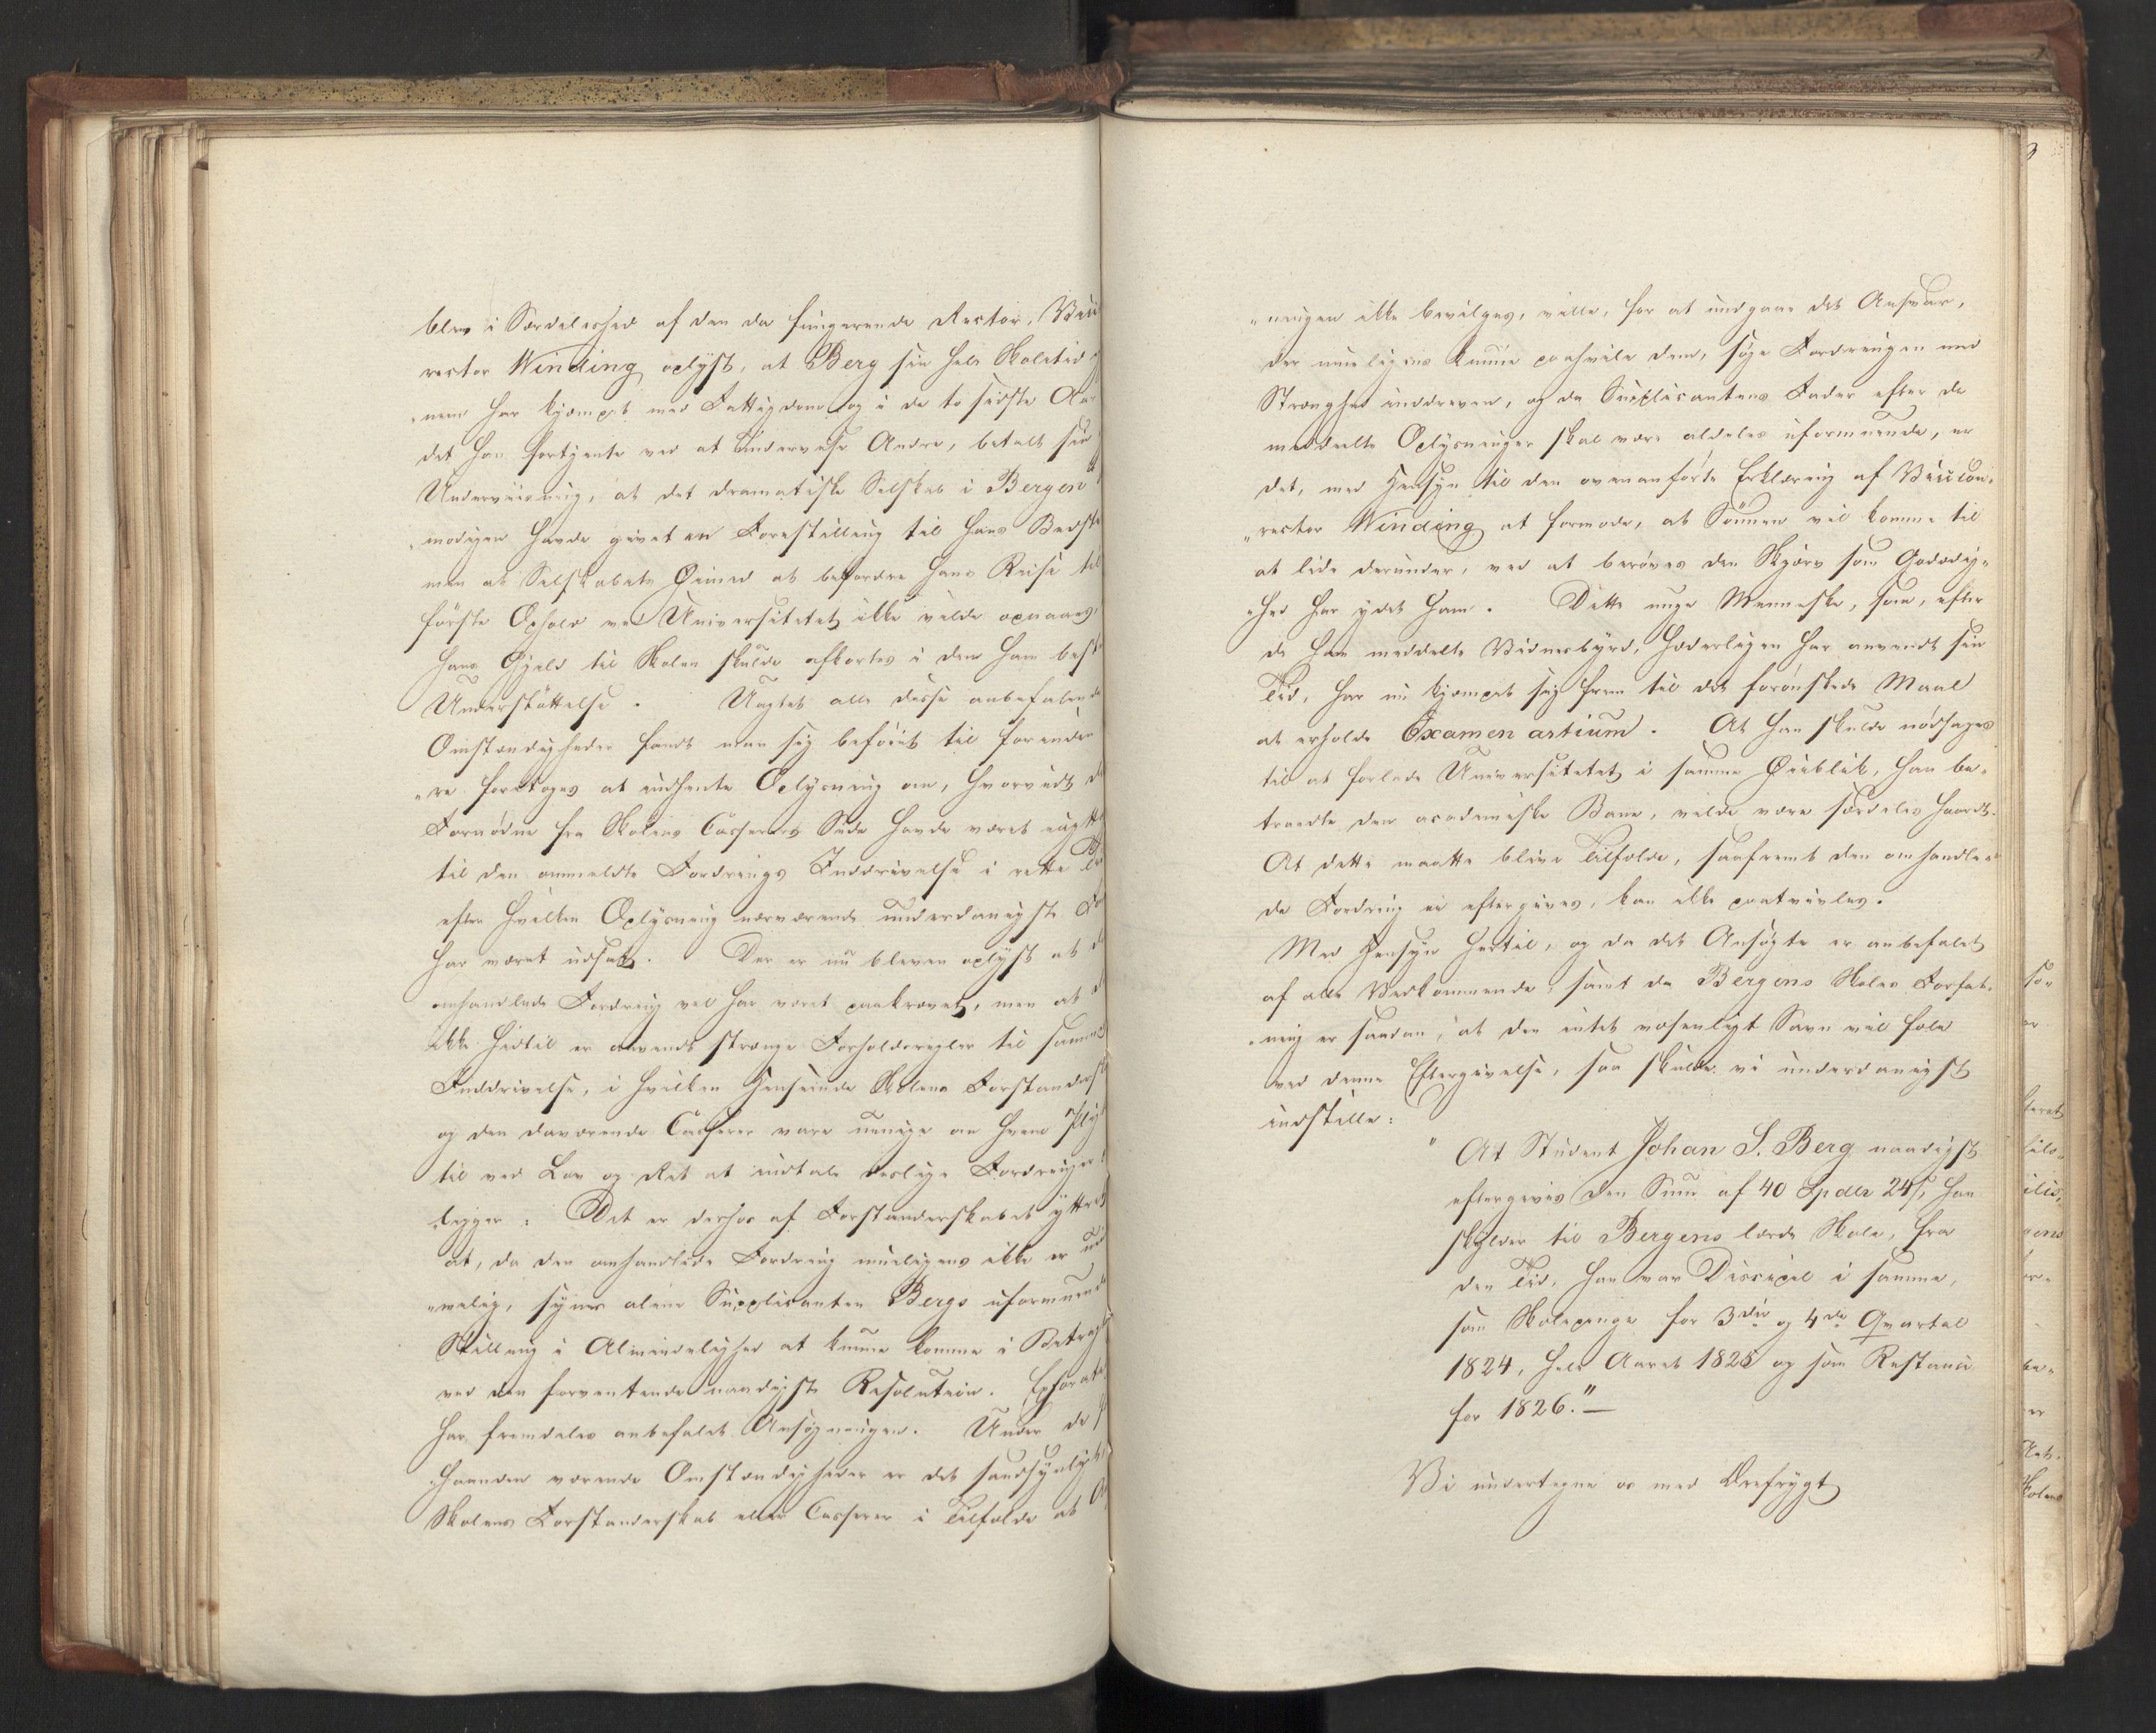 blev i Særdeleshed af den da fungerende Rector,
rector Winding oplyst, at Berg sin hele Skoletid
nem har kjæmpet med Fattigdom og i de to sidste
det han fortjente ved at undervise Andre, betalt sin
Underviisning, at det dramatiske Selskab i Bergen
modigen havde givet en Forestilling til hans Bedste
men at Selskabets Øiemed at befordre hans Reise til
første Ophold ved Universitetet ikke vilde opnaaes,
hans Gjeld til Skolen skulde afkortes i den ham
Understøttelse. Uagtet alle disse anbefalende
Omstændigheder fandt man sig beføiet til forinden
re foretoges at indhente Oplysning om, hvorvidt
Fornødne fra Skolens Casserers Side havde været iagtt
til den anmeldte Fordrings Inddrivelse i rette
efter hvilken Oplysning nærværende underdanigste
har været udsat. Der er nu bleven oplyst at
omhandlede Fordring vel har været paakrævet, men at
ikke hidtil er anvendt strænge Forholdsregler til
Inddrivelse, i hvilken Henseende Skolens Forstandersk
og den daværende Casserer vare uenige om hvem
til ved Lov og Ret at indtale deslige Fordringer
ligger. Det er derhos af Forstanderskabet yttret
at, da den omhandlede Fordring mueligens ikke er
"melig, synes alene Supplicanten Bergs uformuende
Stilling i Almindelighed at kunne komme i
ved den forventende naadigste Resolution. Ephorat
har fremdeles anbefalet Ansøgningen. Under de
haanden værende Omstændigheder er det sandsynligt
Skolens Forstanderskab eller Casserer i Tilfælde at
"ningen ikke bevilges, ville, for at undgaae det Ansvar,
der mueligens kunne paahvile dem, søge Fordringen med
Strænghed inddreven, og da Supplicantens Fader efter de
meddeelte Oplysninger skal være aldeles uformuende, er
det, med Hensyn til den ovenanførte Erklæring af
"rector Winding at formode, at Sønnen vil komme til
at lide derunder, ved at berøves den Skjærv som Godædig-
"hed har ydet ham. Dette unge Menneske, som, efter
de ham meddelte Vidnesbyrd, hæderligen har anvendt sin
Tid, har nu kjæmpet sig frem til det forønskede Maal
at erholde Examen artium. At han skulde nødsages
til at forlade Universitetet i samme Øieblik, han be-
traadte den academiske Bane, vilde være særdeles haardt.
At dette maatte blive Tilfælde, saafremt den omhandle-
de Fordring ei eftergives, kan ikke paatvivles.
Med Hensyn hertil, og da det Ansøgte er anbefalet
af alle Vedkommende, samt da Bergens Skoles Forfat-
"ning er saadan, at den intet væsenligt Savn vil føle
ved denne Eftergivelse, saa skulde vi underdanigst
indstille:
" At Student Johan S. Berg naadigst
eftergives den Sum af 40 Spdlr 24 ß, han
skylder til Bergens lærde Skole, fra
den Tid, han var Discipel i samme,
som Skolepenge for 3die og 4de Qvartal
1824, hele Aaret 1825 og som Restance
for 1826."—
Vi undertegne os med Ærefrygt